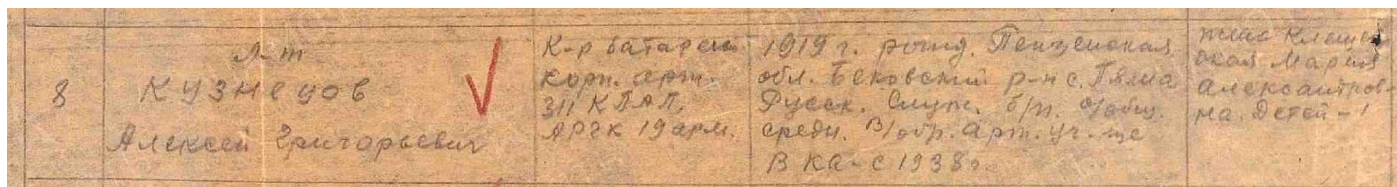 8
л-т
Кузнецов
Алексей Григорьевич
К-р батареи
корп. арт.
311 КПАП,
АРГК 19 арм.
1919 г. рожд. Пензенская
обл. Бековский р-н с.
Русск. Служ. б/п. о/общ.
средн. в/обр. арт. уч-ще
В КА - с 1938 г.
жена Клещев
ская Мария
Александров-
на. Детей - 1